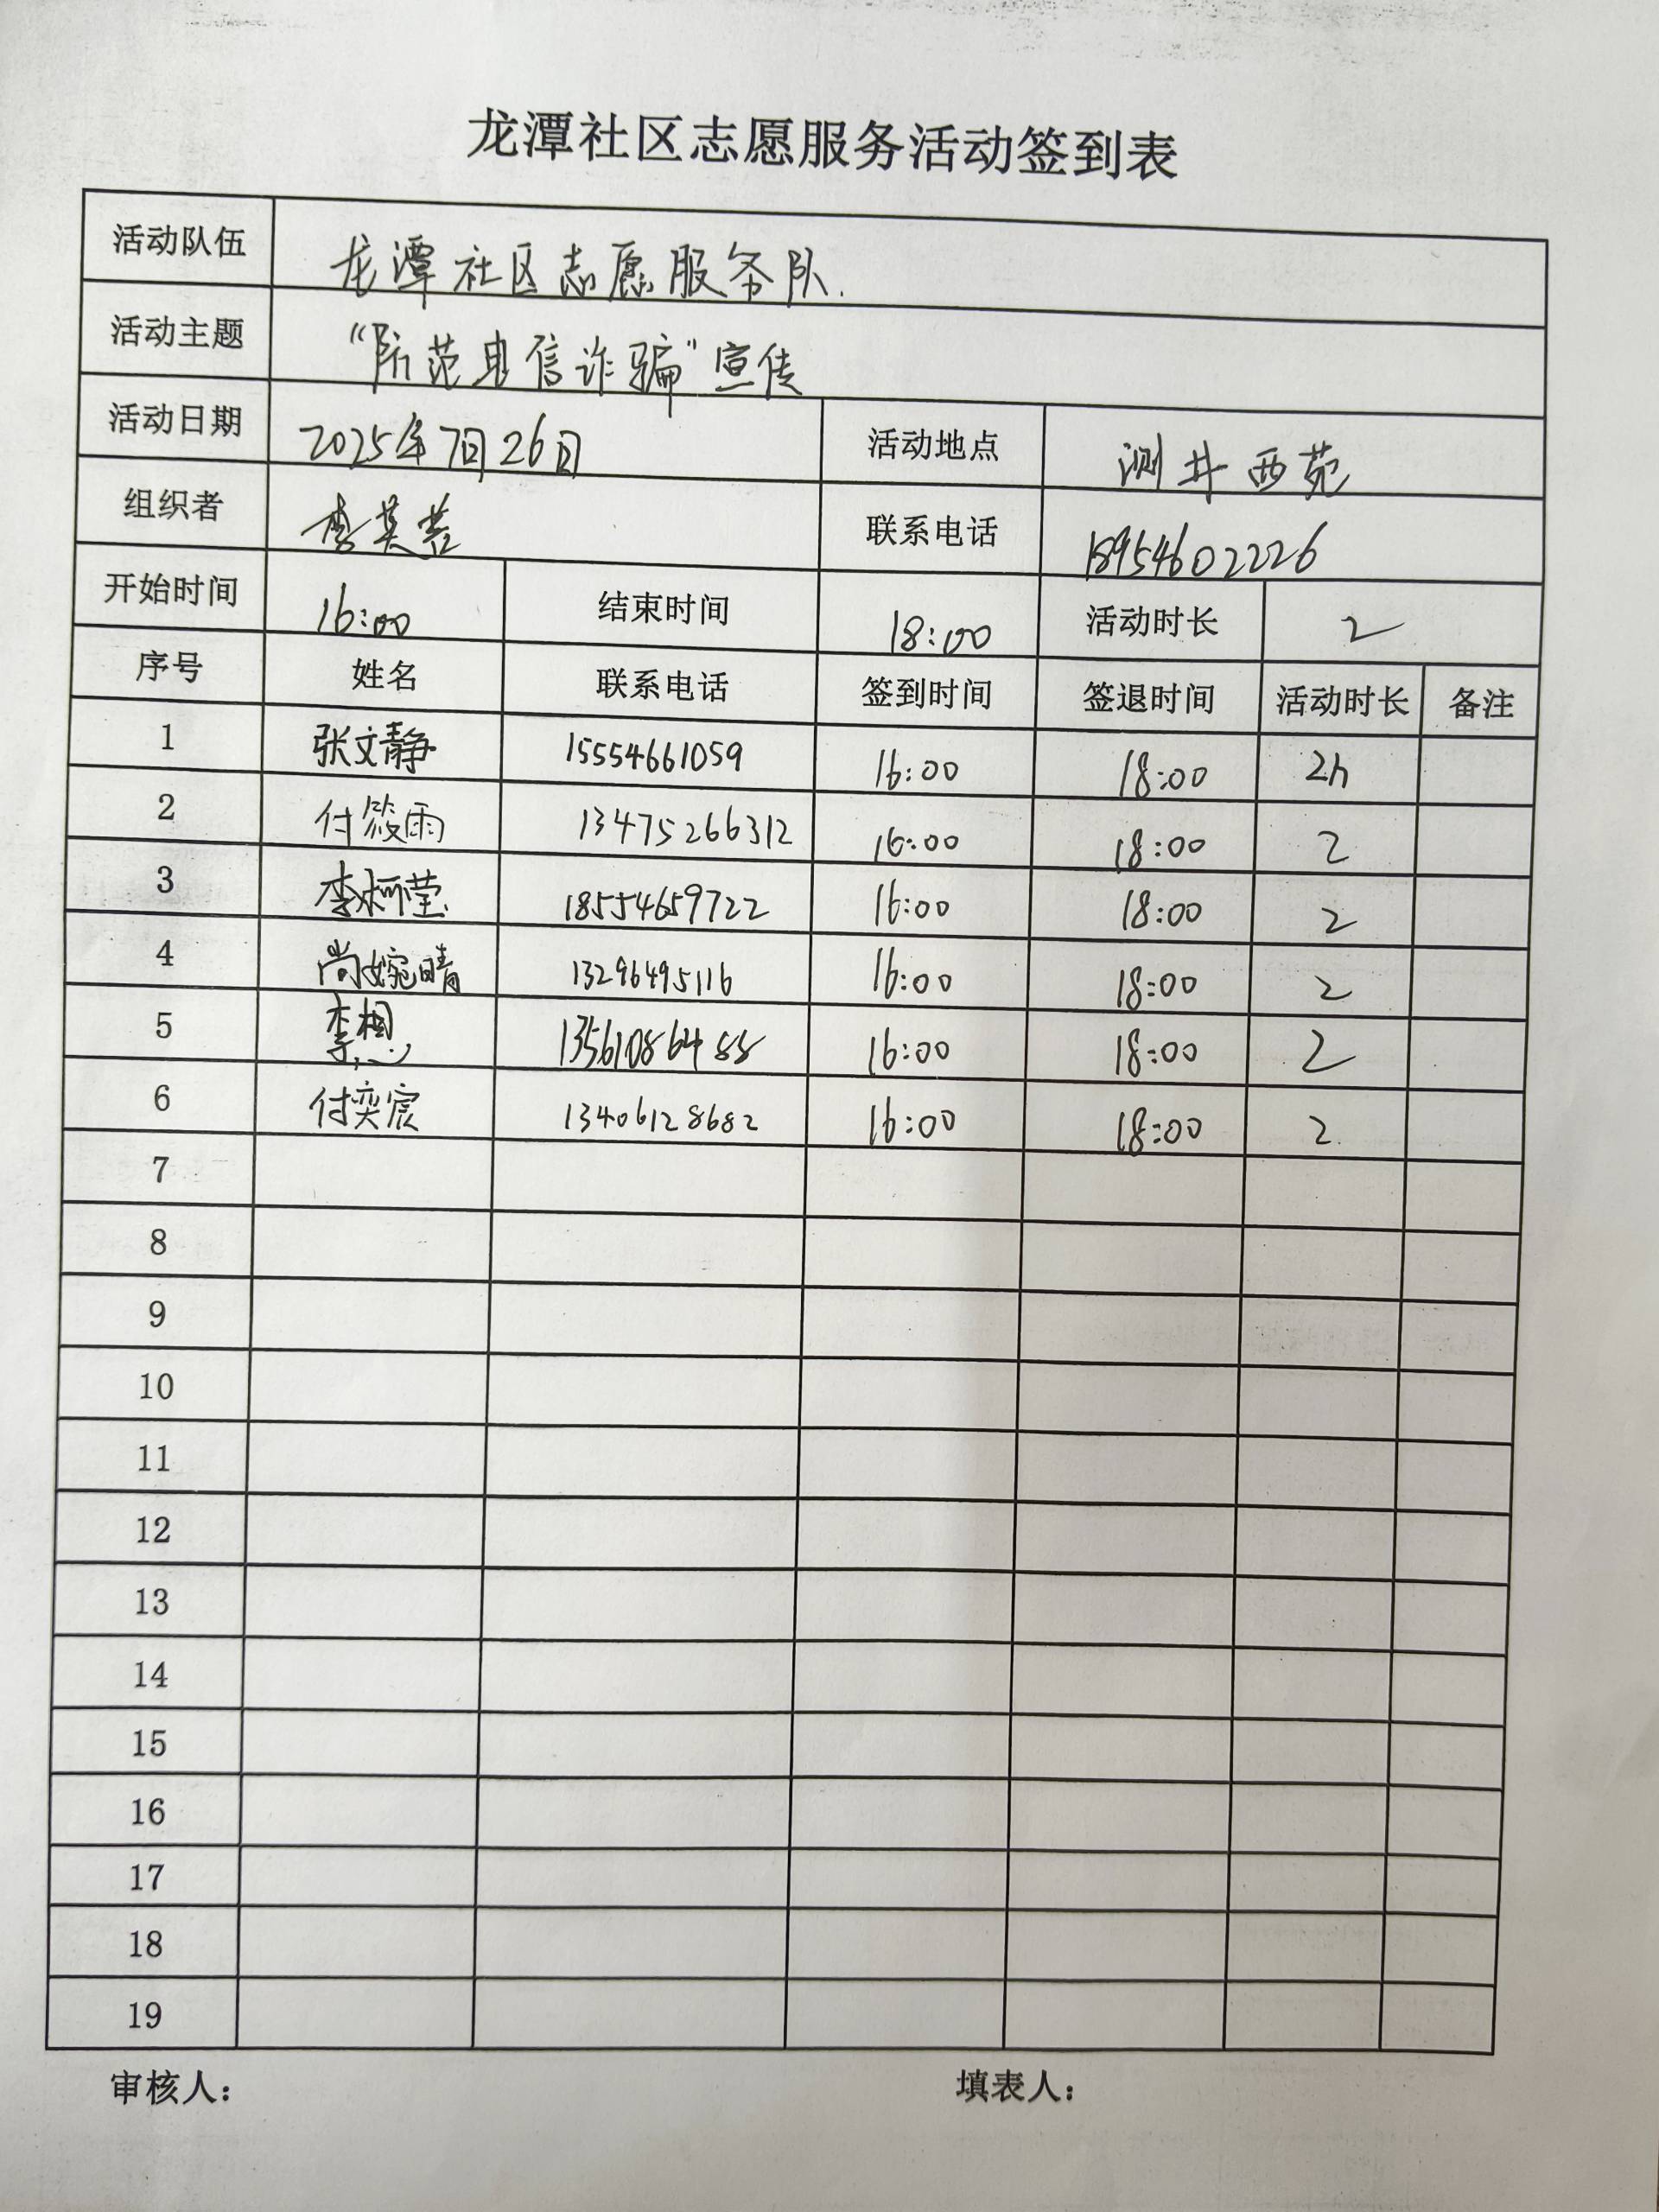 龙潭社区志愿服务活动签到表
活动队伍 龙潭社区志愿服务队.
活动主题 “防范电信诈骗”宣传
活动日期 2025年7月26日 活动地点 测井西苑
组织者 李英 联系电话 18954602226
开始时间 16:00 结束时间 18:00 活动时长 2
序号 姓名 联系电话 签到时间 签退时间 活动时长 备注
1 张文静 15554661059 16:00 18:00 2h
2 付筱雨 13475266312 16:00 18:00 2
3 李炳莹 18554659722 16:00 18:00 2
4 尚婉晴 13296495116 16:00 18:00 2
5 李想 13561086488 16:00 18:00 2
6 付奕宸 13406128682 16:00 18:00 2
7
8
9
10
11
12
13
14
15
16
17
18
19
审核人： 填表人：